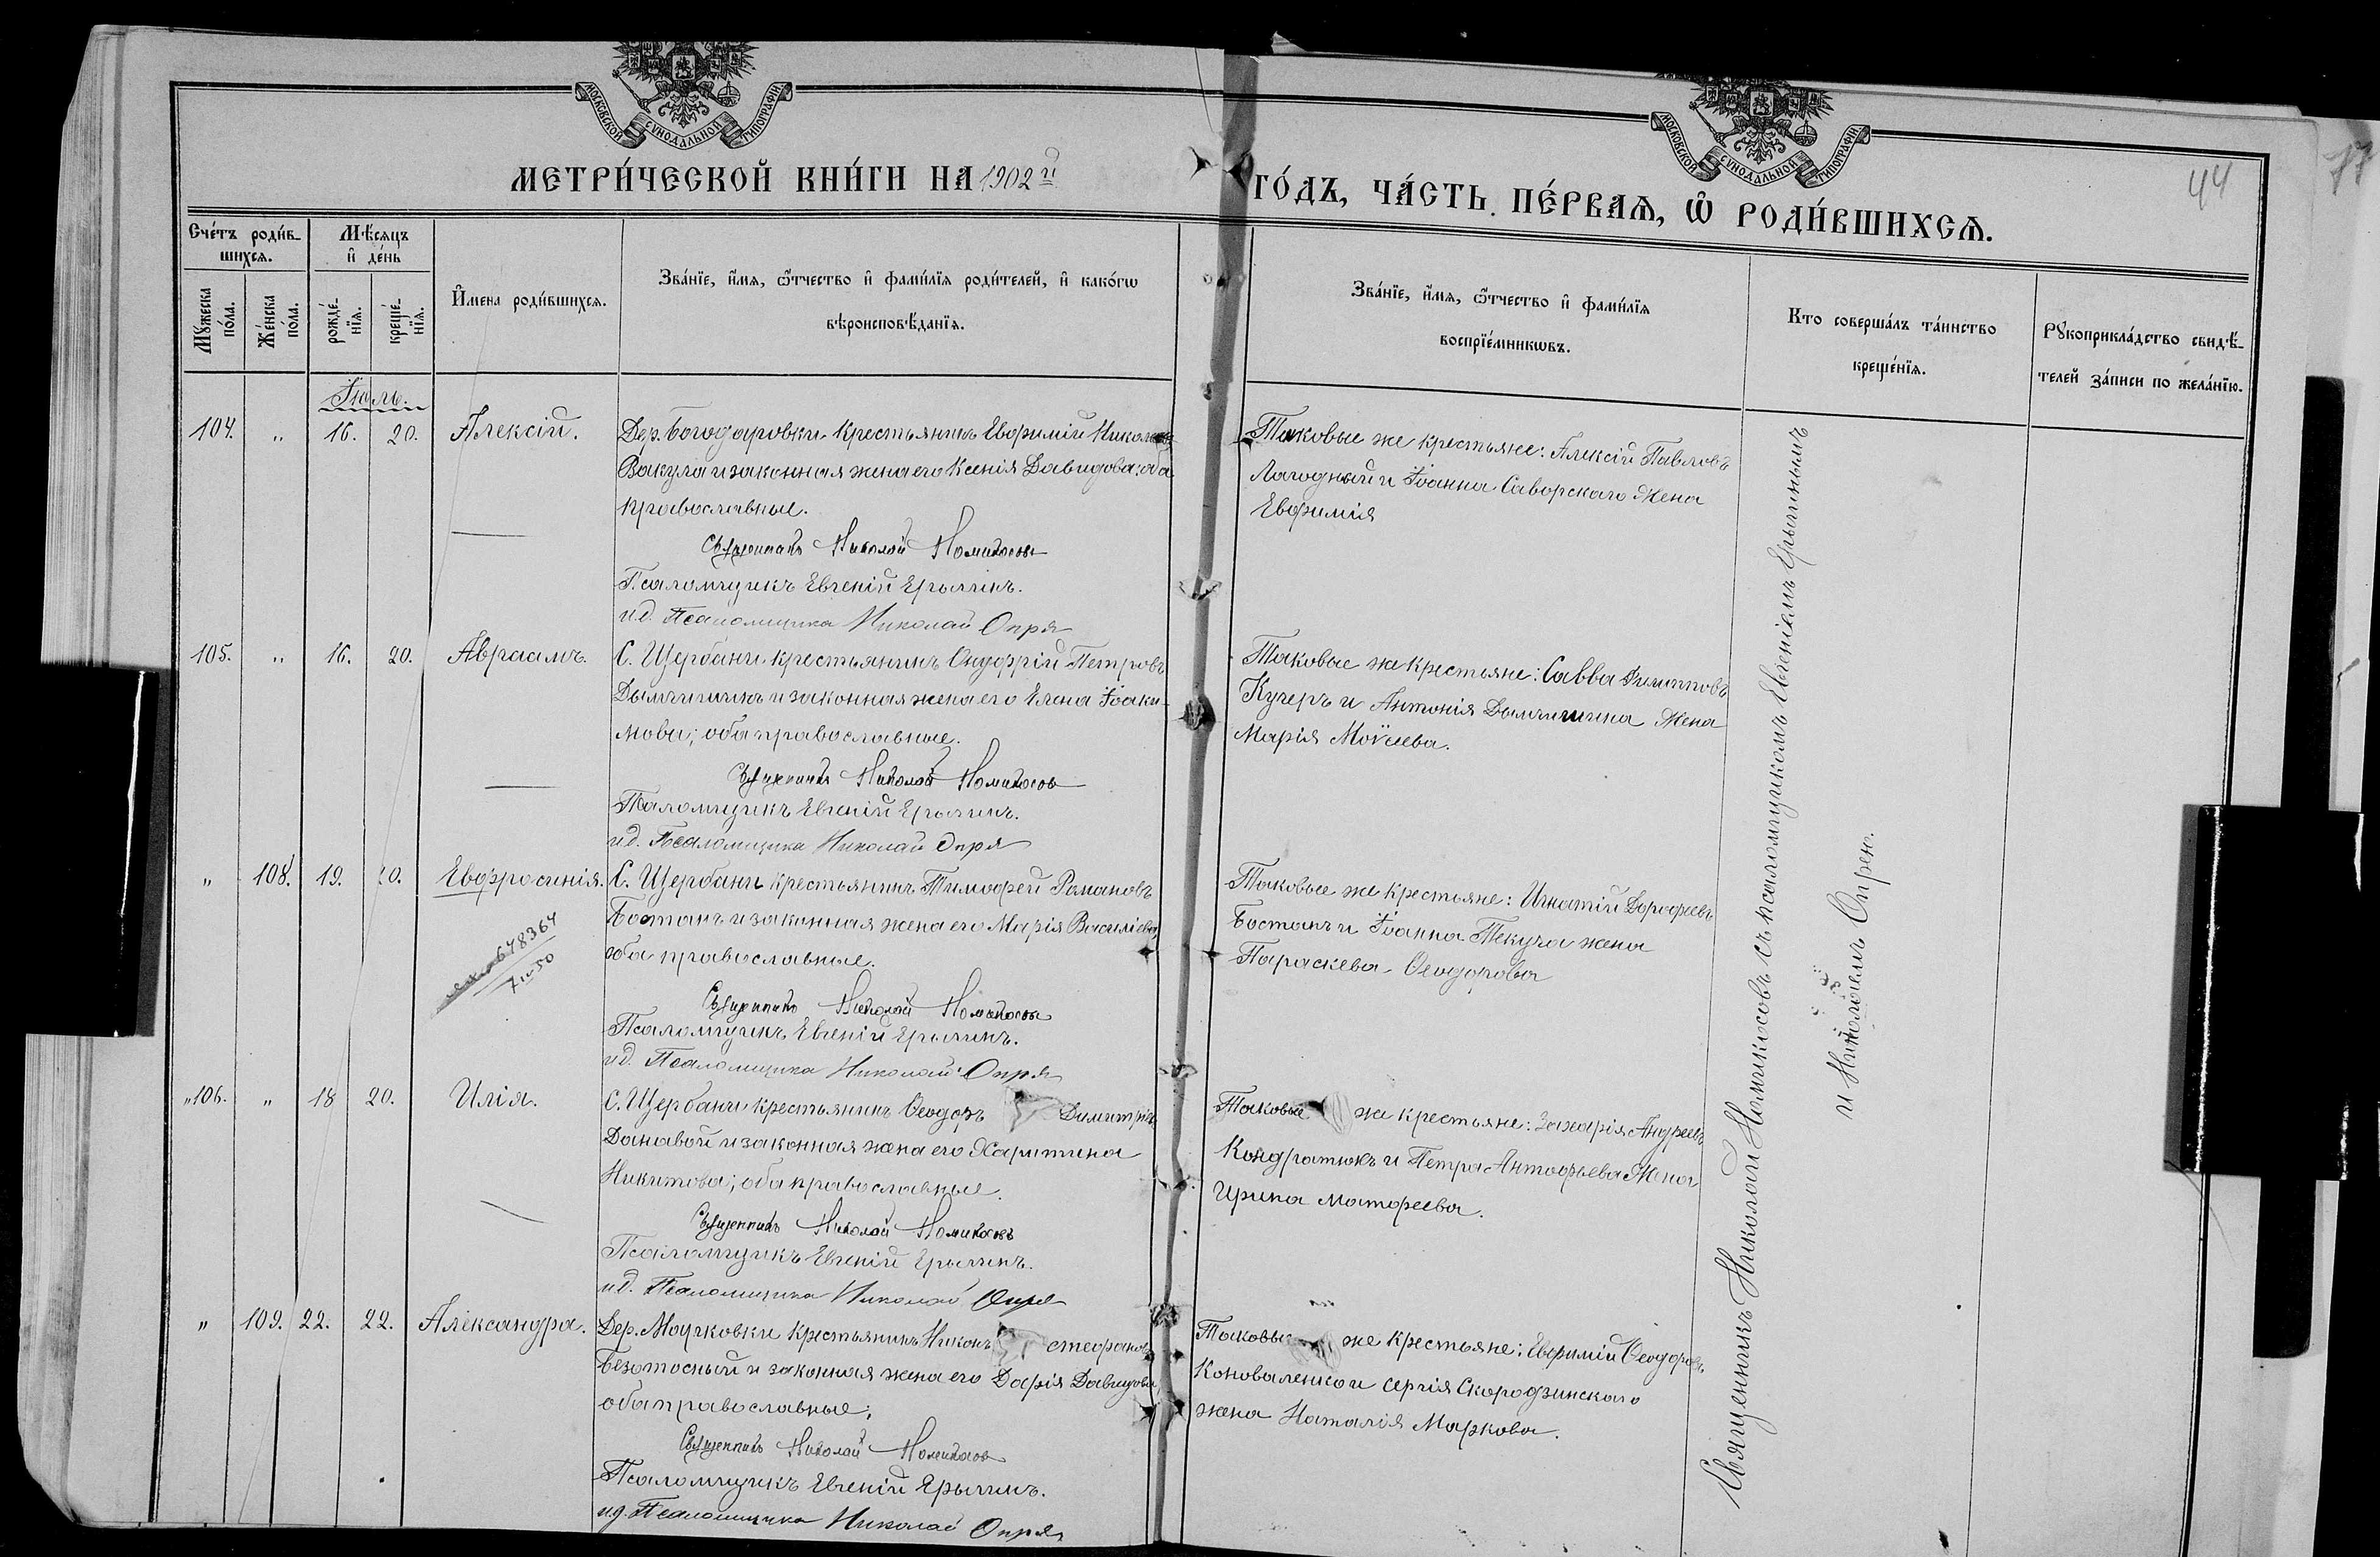 МОСКОВСКОЙ СѴНОДАЛЬНОЙ ТИПОГРАФІИ
МОСКОВСКОЙ СѴНОДАЛЬНОЙ ТИПОГРАФІИ
МЕТРИ́ЧЕСКОЙ КНИ́ГИ НА 1902й
ГО́ДЪ, ЧА́СТЬ ПЕ́РВАѦ, Ѡ РОДИ́ВШИХСѦ.
44
77
Сче́тъ роди́в-
шихсѧ.
Мѣ́сѧцъ
и҆ де́нь
Мꙋ́жеска
по́ла.
Же́нска
по́ла.
рожде́-
нїѧ.
креще́-
нїѧ.
И҆мена роди́вшихсѧ.
Зва́нїе, и҆́мѧ, ѻ҆́тчество и҆ фами́лїѧ роди́телей, и҆ како́гѡ
вѣроисповѣ́данїѧ.
Зва́нїе, и҆́мѧ, ѻ҆́тчество и҆ фами́лїѧ
воспрїе́мникѡвъ.
Кто соверша́лъ та́инство
креще́нїѧ.
Рꙋкоприкла́дство свидѣ́-
телей за́писи по жела́нїю.
Іюль.
104. „ 16. 20. Алексій.
Дер. Богодаровки крестьянинъ Евѳимій Николаевъ
Вакула и законная жена его Ксенія Давидова; оба
православные.
Священникъ Николай Номикосов
Псаломщикъ Евгеній Ерыгинъ.
и.д. Псаломщика Николай Опря
Таковые же крестьяне: Алексій Павловъ
Лагодный и Іоанна Саворскаго жена
Евфимія
105. „ 16. 20. Авраамъ.
С. Щербани крестьянинъ Онуфрій Петровъ
Дымчишинъ и законная жена его Елена Іоаки-
мова; оба православные.
Священникъ Николай Номикосов
Псаломщикъ Евгеній Ерыгинъ.
и.д. Псаломщика Николай Опря
Таковые же крестьяне: Савва Филипповъ
Кучеръ и Антонія Дымчишина жена
Марія Моѵсеева.
„ 108. 19. 20. Евфросинія.
678364
С. Щербани крестьянинъ Тимофей Романовъ
Бостанъ и законная жена его Марія Василіева,
оба православные.
Священникъ Николай Номикосов
Псаломщикъ Евгеній Ерыгинъ.
и.д. Псаломщика Николай Опря
Таковые же крестьяне: Игнатій Дорофеевъ
Бостанъ и Іоанна Текуча жена
Параскева Ѳеодорова
„106. „ 18 20. Илія.
С. Щербани крестьянинъ Ѳеодоръ Димитріевъ
Данавой и законная жена его Харитина
Никитова; оба православные.
Священникъ Николай Номикосовъ
Псаломщикъ Евгеній Ерыгинъ.
и.д. Псаломщика Николай Опря
Таковые же крестьяне: Захарія Андреевъ
Кондратюкъ и Петра Антофьева жена
Ирина Матфеева.
„ 109. 22. 22. Александра.
Дер. Мочковки крестьянинъ Никонъ Стефановъ
Безотосный и законная жена его Дарія Давидова
оба православные;
Священникъ Николай Номикосов
Псаломщикъ Евгеній Ерыгинъ.
и.д. Псаломщика Николай Опря
Таковые же крестьяне: Евфимій Ѳеодоровъ
Коноваленко и Сергія Скородзинскаго
жена Наталія Маркова.
Священникъ Николай Номикосовъ съ псаломщикомъ Евгеніемъ Ерыгинымъ
и Николаемъ Опрею.